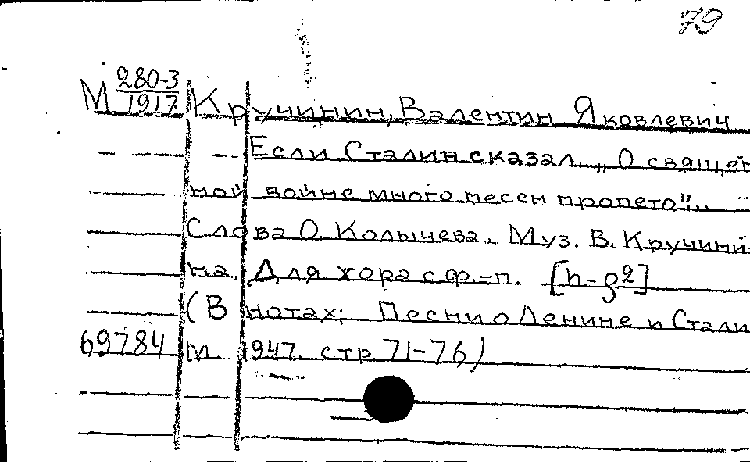 79
М 280-3
1917 Кручинин, Валентин Яковлевич
Если Сталин сказал. „О священ
ной войне много песен пропето"..
Слова О. Колычева. Муз. В. Кручини
на. Для хора с ф.-п. [h-g²]
(В нотах: Песни о Ленине и Стали
69784 М. 1947. стр 71-76)